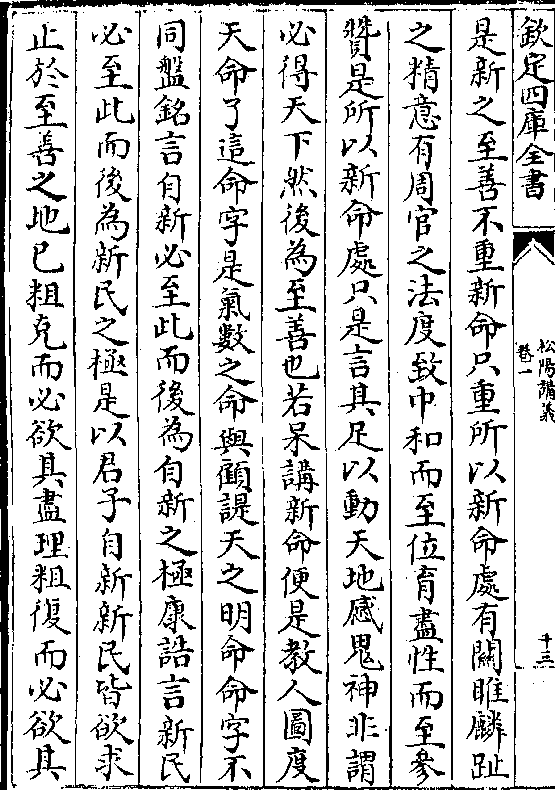 欽定四庫全書
松陽講義
卷一
十三
是新之至善不重新命只重所以新命處有關雎麟趾
之精意有周官之法度致中和而至位育盡性而至參
贊是所以新命處只是言其足以動天地感鬼神非謂
必得天下然後為至善也若呆講新命便是教人圖度
天命了這命字是氣數之命與顧諟天之明命命字不
同盤銘言自新必至此而後為自新之極康誥言新民
必至此而後為新民之極是以君子自新新民皆欲求
止於至善之地已粗克而必欲其盡理粗復而必欲其